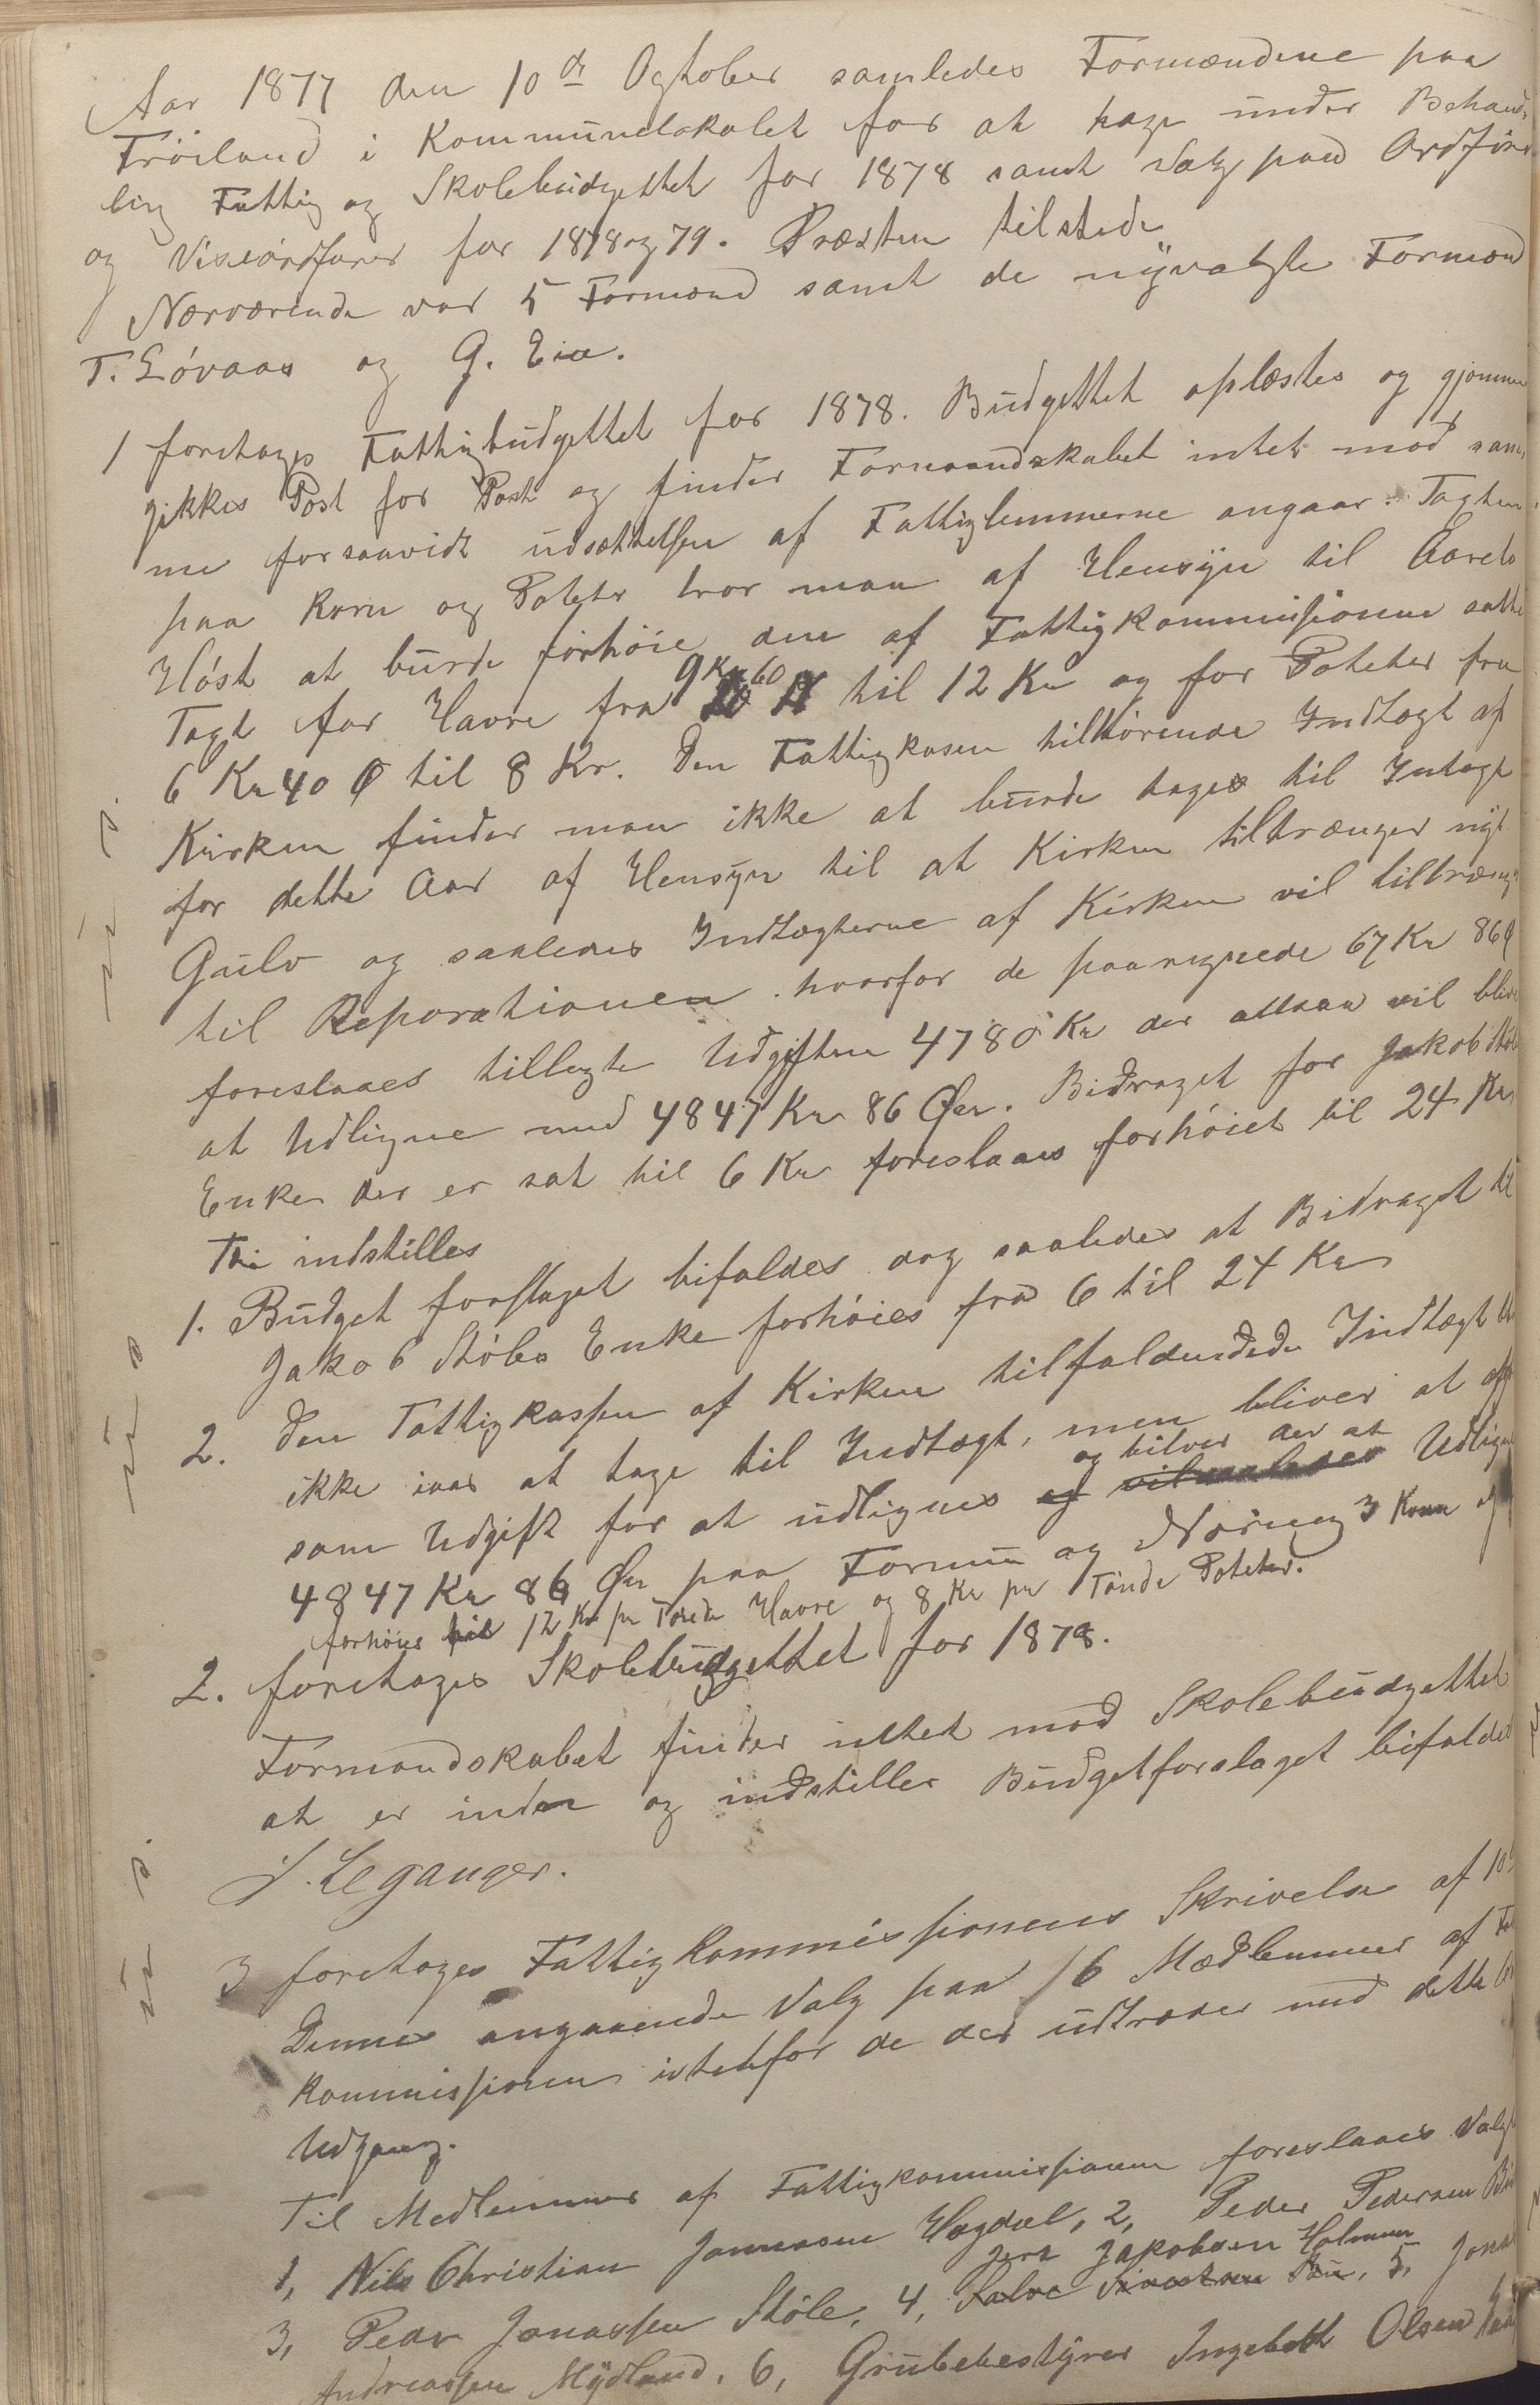 Aar 1877 den 10de Ogtober samledes Formændene paa
Frøiland i Kommunelokalet for at tage under Behand-
ling Fattig og Skolebudgettet for 1878 samt Valg paa Ordfører
og Viseordfører for 1878 og 79. Præsten tilstede
Nærværende var 5 Formænd samt de nyvalgte Formænd
T. Løvaas og G. Eia.
1 foretages Fattigbudgettet for 1878. Budgettet oplæstes og gjennem
gikkes Post for Post og finder Formandskabet intet mod sam-
me forsaavidt udsættelsen af Fattiglemmerne angaar. Tagten
paa Korn og Poteter tror man af Hensyn til Aarets
Høst at burde forhøie den af Fattigkommisionen satte
9 Kr 60
Tagt for Havre fra til 12 Kr og for Poteter fra
6 Kr 40 Ø til 8 Kr. Den Fattigkasen tilhørende Indtægt af
Kirken finder man ikke at burde tages til Intægt
for dette Aar af Hensyn til at Kirken tiltrænger nyt
Gulv og saaledes Indtægterne af Kirken vil tiltrænges
til Reparationen hvorfor de paaregnede 67 Kr 86 Ø
foreslaaes tillagte Udgiften 4780 Kr der altsaa vil blive
at Udligne med 4847 Kr 86 Øre. Bidraget for Jakob Støls
Enke der er sat til 6 Kr foreslaaes forhøiet til 24 Kr
Thi indstilles
1. Budget forslaget bifaldes dog saaledes at Bidraget til
Jakob Støles Enke forhøies fra 6 til 24 Kr
2. Den Fattigkassen af Kirken tilfaldendede Indtægt
ikke iaar at tage til Indtægt, men bliver at
og bliver der at
som Udgift for at udlignes Udligne
4847 Kr 86 Øre paa Formue og Næring 3 Korn
forhøies til 12 Kr pr Tønde Havre og 8 Kr pr Tønde Poteter.
2. foretages Skolebudgettet for 1878.
Formandskabet finder intet mod Skolebudgettet
at er indre og indstiller Budgetforslaget bifaldet
S. Leganger.
3 foretages Fattigkommissionens Skrivelse af 10de
Dennes angaaende Valg paa 6 Medlemmer af
kommissionen istedfor de der udtræder med dette
Udgang.
Til Medlemmer af Fattigkommissionen foreslaaes Valgt
1, Nils Christian Jonassen Hogdal, 2, Peder Pedersen
Jens Jakobsen Holmen
3, Peder Jonassen Støle, 4, Salve 5, Jonas
Andreassen Mydland. 6, Grubebestyrer Ingebret Olsen